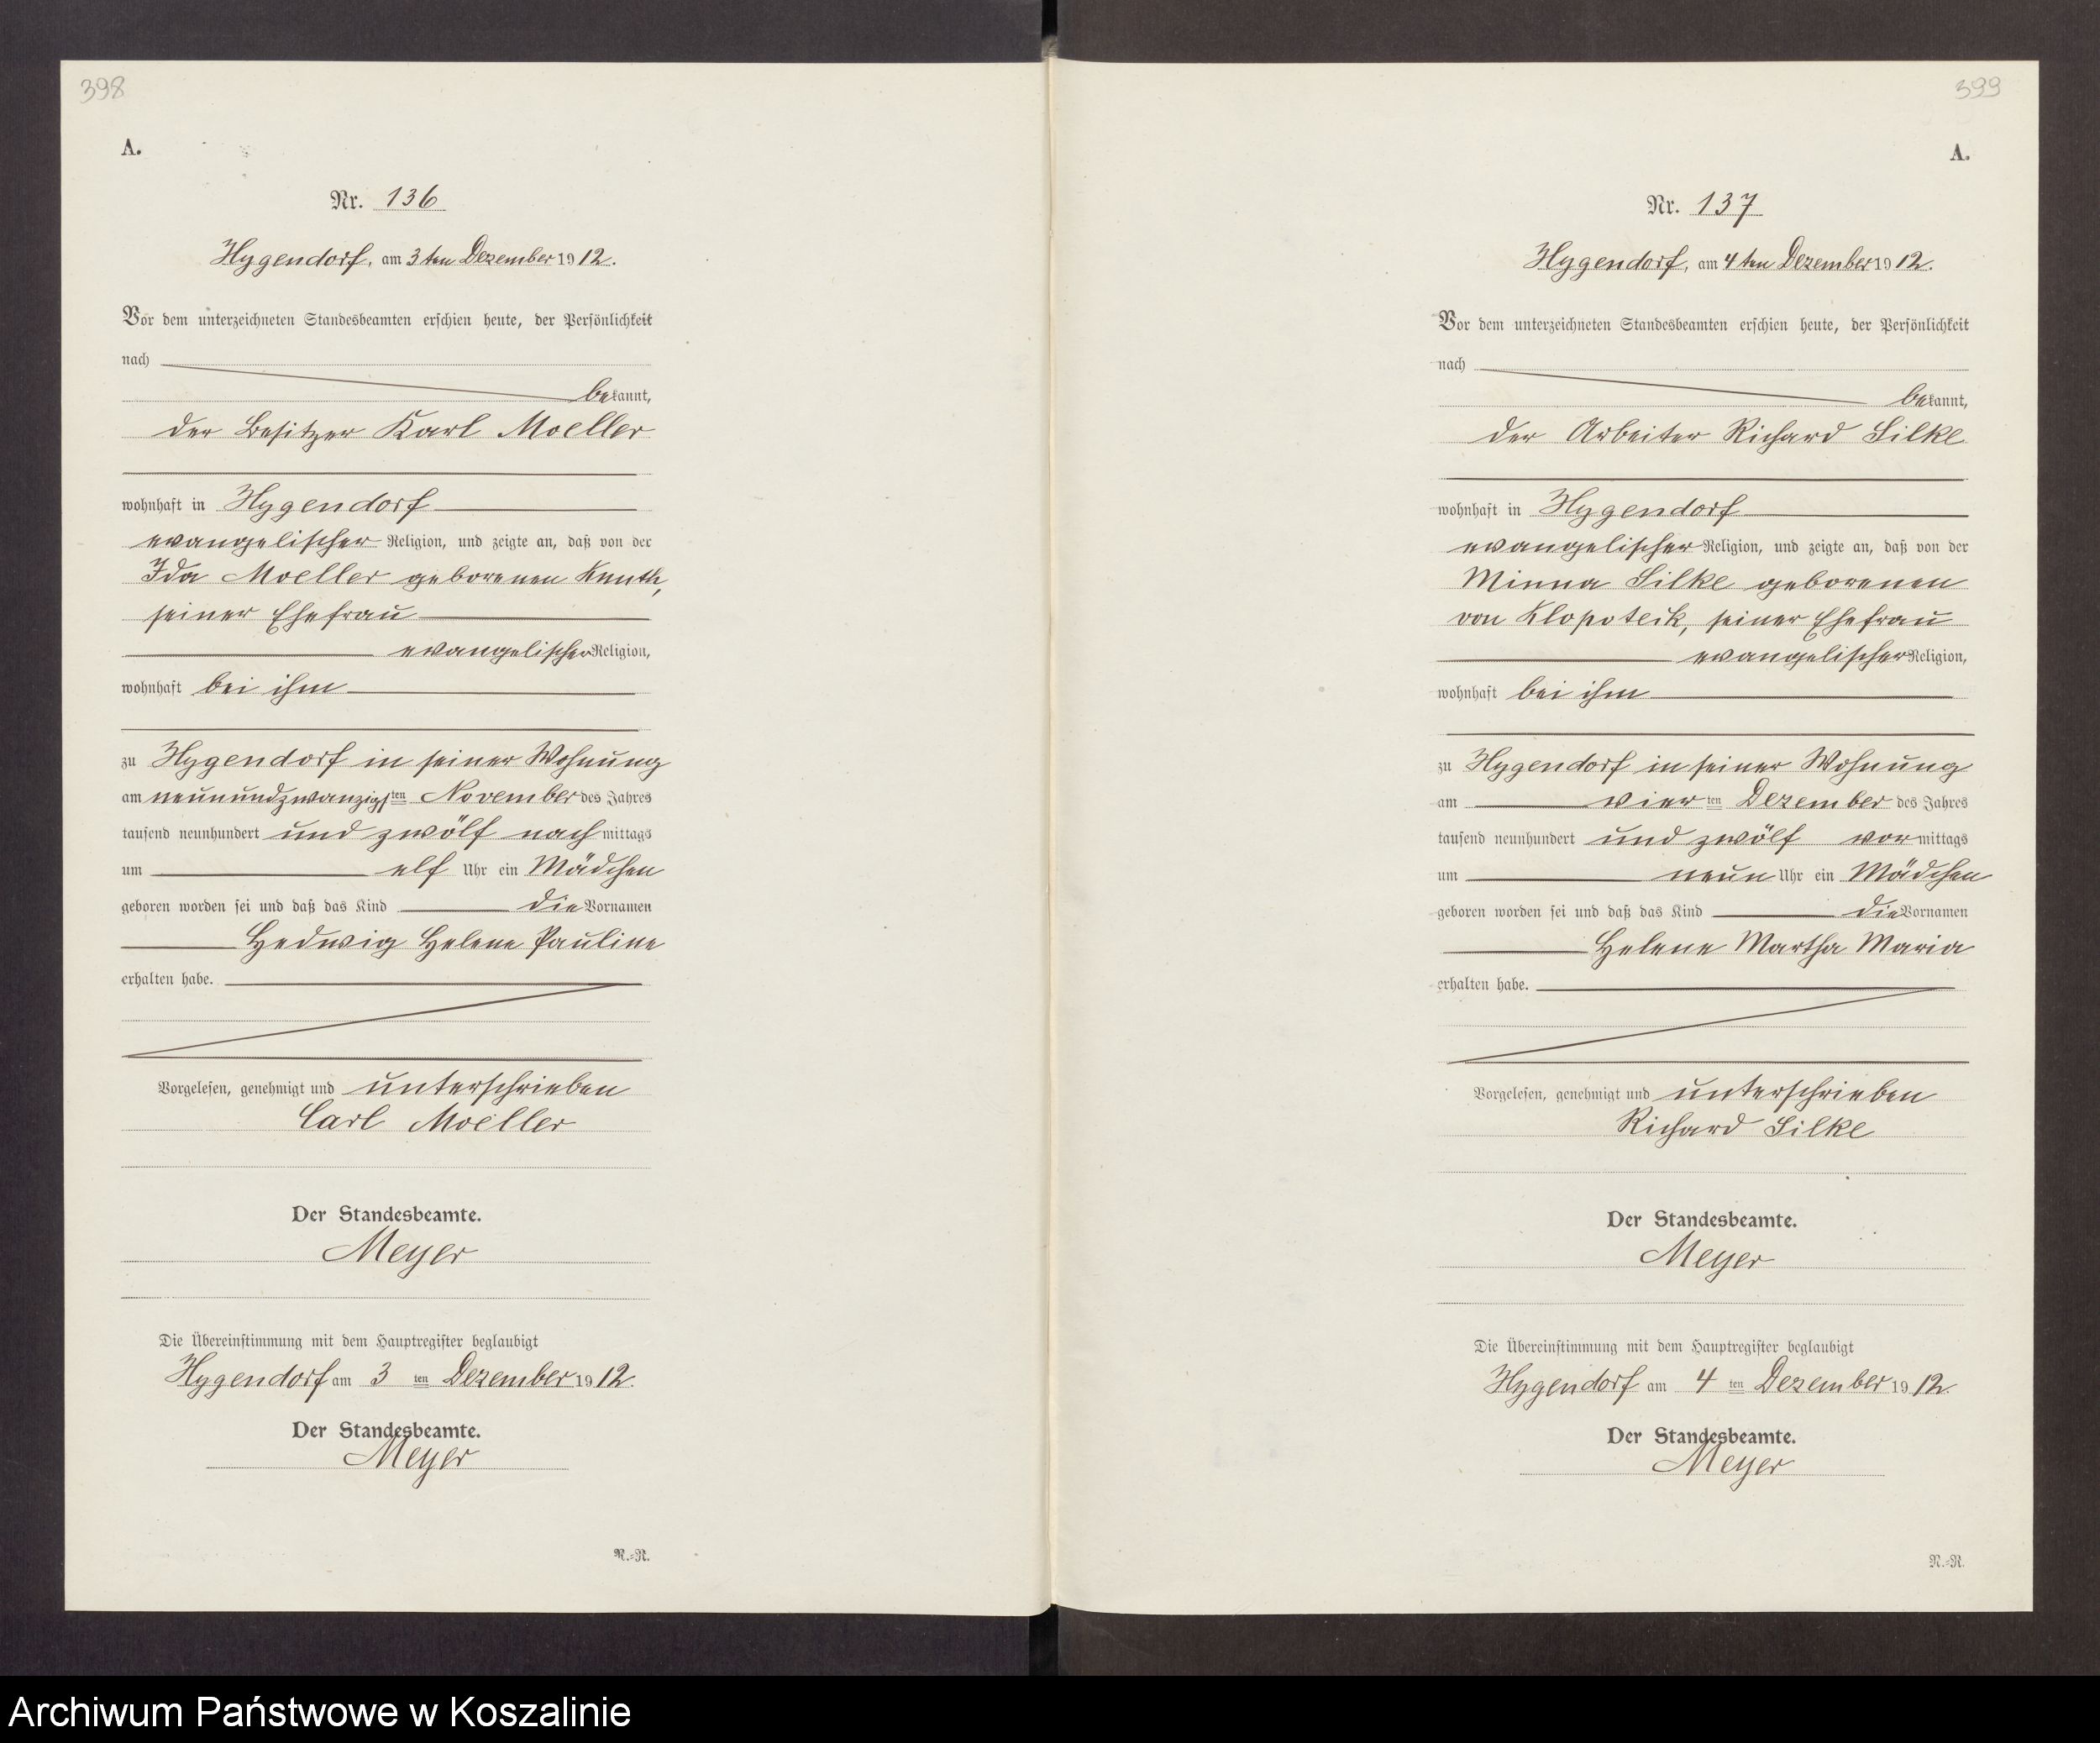 398
A.
Nr. 136
Hygendorf, am 3ten Dezember 1912.
Vor dem unterzeichneten Standesbeamten erschien heute, der Persönlichkeit
nach
bekannt,
der Besitzer Karl Moeller
wohnhaft in Hygendorf
evangelischer Religion, und zeigte an, daß von der
Ida Moeller geborenen Knuth,
seiner Ehefrau
evangelischer Religion,
wohnhaft bei ihm
zu Hygendorf in seiner Wohnung
am neunundzwanzigsten November des Jahres
tausend neunhundert und zwölf nachmittags
um elf Uhr ein Mädchen
geboren worden sei und daß das Kind die Vornamen
Hedwig Helene Pauline
erhalten habe.
Vorgelesen, genehmigt und unterschrieben
Carl Moeller
Der Standesbeamte.
Meyer
Die Übereinstimmung mit dem Hauptregister beglaubigt
Hygendorf am 3ten Dezember 1912.
Der Standesbeamte.
Meyer
N.-R.
399
A.
Nr. 137
Hygendorf, am 4ten Dezember 1912.
Vor dem unterzeichneten Standesbeamten erschien heute, der Persönlichkeit
nach
bekannt,
der Arbeiter Richard Silke
wohnhaft in Hygendorf
evangelischer Religion, und zeigte an, daß von der
Minna Silke geborenen
von Klopoteck, seiner Ehefrau
evangelischer Religion,
wohnhaft bei ihm
zu Hygendorf in seiner Wohnung
am vierten Dezember des Jahres
tausend neunhundert und zwölf vormittags
um neun Uhr ein Mädchen
geboren worden sei und daß das Kind die Vornamen
Helene Martha Maria
erhalten habe.
Vorgelesen, genehmigt und unterschrieben
Richard Silke
Der Standesbeamte.
Meyer
Die Übereinstimmung mit dem Hauptregister beglaubigt
Hygendorf am 4ten Dezember 1912.
Der Standesbeamte.
Meyer
N.-R.
Archiwum Państwowe w Koszalinie